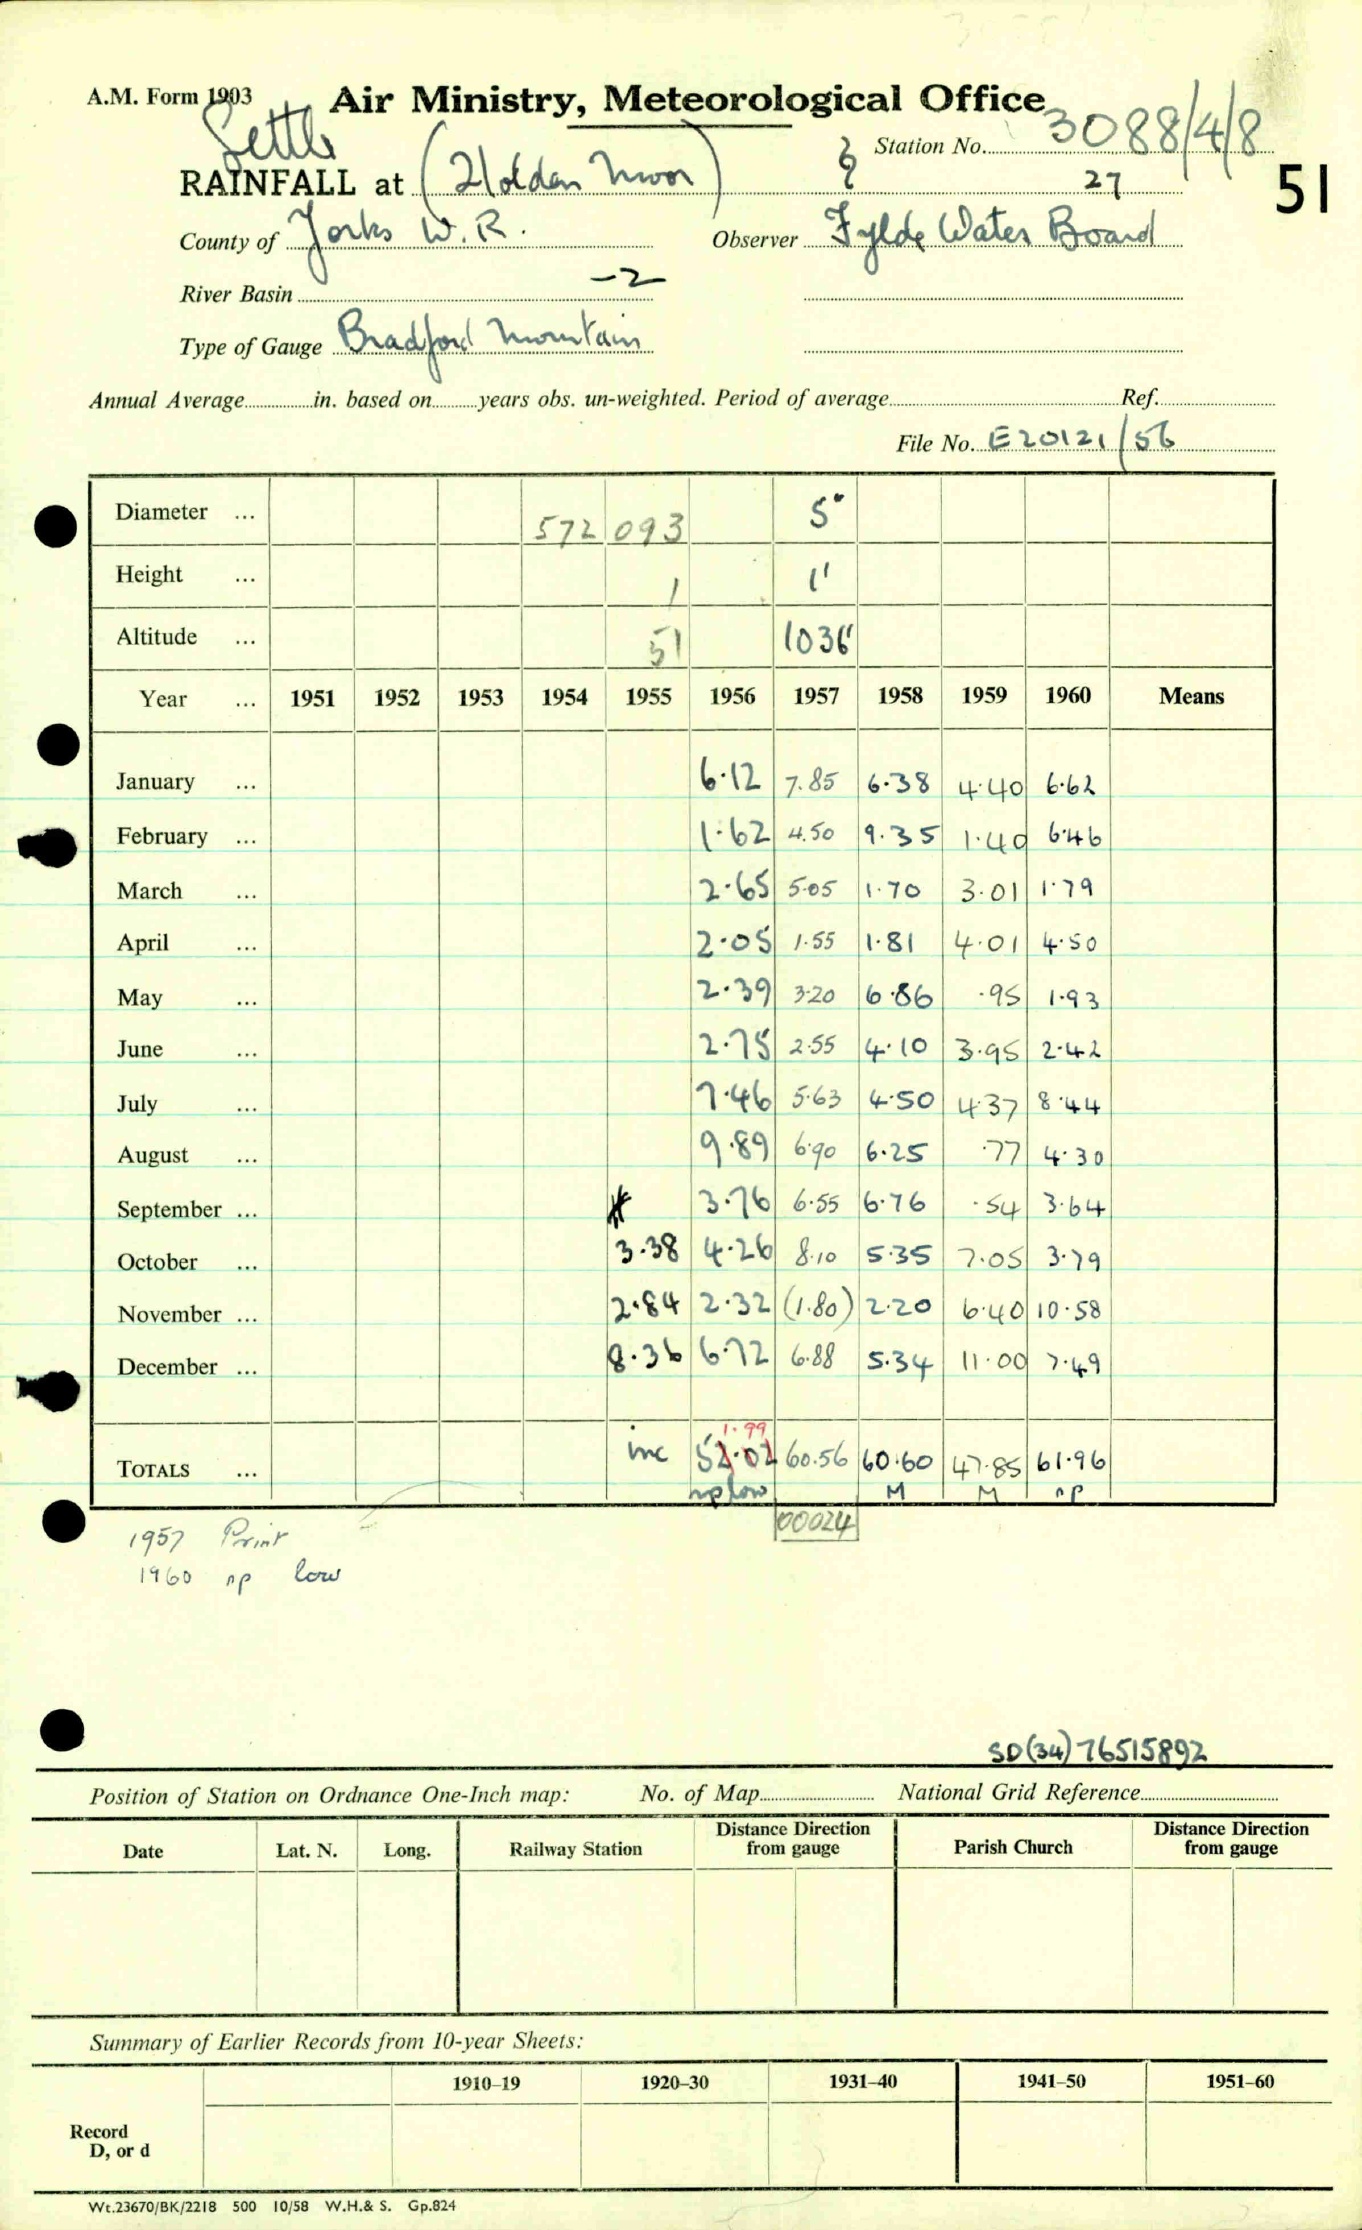 A.M. Form 1903 Air Ministry, Meteorological Office
Settle
Station No. 3088/4/8
RAINFALL at (Holden Moor) 27
51
County of Yorks W.R. Observer Fylde Water Board
River Basin -2
Type of Gauge Bradford Mountain
Annual Average in. based on years obs. un-weighted. Period of average Ref.
File No. E20121/56
Diameter ... 572 093 5"
Height ... 1 1'
Altitude ... 51 1036'
Year ... 1951 1952 1953 1954 1955 1956 1957 1958 1959 1960 Means
January ... 6.12 7.85 6.38 4.40 6.62
February ... 1.62 4.50 9.35 1.40 6.46
March ... 2.65 5.05 1.70 3.01 1.79
April ... 2.05 1.55 1.81 4.01 4.50
May ... 2.39 3.20 6.86 .95 1.93
June ... 2.75 2.55 4.10 3.95 2.42
July ... 7.46 5.63 4.50 4.37 8.44
August ... 9.89 6.90 6.25 .77 4.30
September ... 3.76 6.55 6.76 .54 3.64
October ... 3.38 4.26 8.10 5.35 7.05 3.79
November ... 2.84 2.32 (1.80) 2.20 6.40 10.58
December ... 8.36 6.72 6.88 5.34 11.00 7.49
1.99
TOTALS ... inc 52.02 60.56 60.60 47.85 61.96
np low M M np
00024
1957 Print
1960 np low
SD(34)76515892
Position of Station on Ordnance One-Inch map: No. of Map National Grid Reference
Date Lat. N. Long. Railway Station Distance Direction from gauge Parish Church Distance Direction from gauge
Summary of Earlier Records from 10-year Sheets:
1910–19 1920–30 1931–40 1941–50 1951–60
Record
D, or d
Wt.23670/BK/2218 500 10/58 W.H.& S. Gp.824